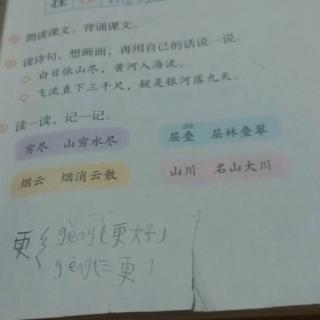 朗读课文。背诵课文。
读诗句，想画面，再用自己的话说一说。
◇ 白日依山尽，黄河入海流。
◇ 飞流直下三千尺，疑是银河落九天。
读一读，记一记。
穷尽 山穷水尽
dié
层叠 层林叠翠
烟云 烟消云散
山川 名山大川
更 { gèng(更好)
gēng(三更)